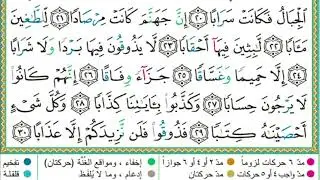 ٱلْجِبَالُ فَكَانَتْ سَرَابًا ٢٠ إِنَّ جَهَنَّمَ كَانَتْ مِرْصَادًا ٢١ لِّلطَّٰغِينَ
مَـَٔابًا ٢٢ لَّٰبِثِينَ فِيهَآ أَحْقَابًا ٢٣ لَّا يَذُوقُونَ فِيهَا بَرْدًا وَلَا شَرَابًا
٢٤ إِلَّا حَمِيمًا وَغَسَّاقًا ٢٥ جَزَآءً وِفَاقًا ٢٦ إِنَّهُمْ كَانُوا۟
لَا يَرْجُونَ حِسَابًا ٢٧ وَكَذَّبُوا۟ بِـَٔايَٰتِنَا كِذَّابًا ٢٨ وَكُلَّ شَىْءٍ
أَحْصَيْنَٰهُ كِتَٰبًا ٢٩ فَذُوقُوا۟ فَلَن نَّزِيدَكُمْ إِلَّا عَذَابًا ٣٠
مدّ ٦ حركات لزوماً مدّ ٢ أو ٤ أو ٦ جوازاً إخفاء ، ومواقع الغُنَّة (حركتان) تفخيم
مدّ واجب ٤ أو ٥ حركات مدّ حركتان إدغام ، وما لا يُلفَظ قلقلة